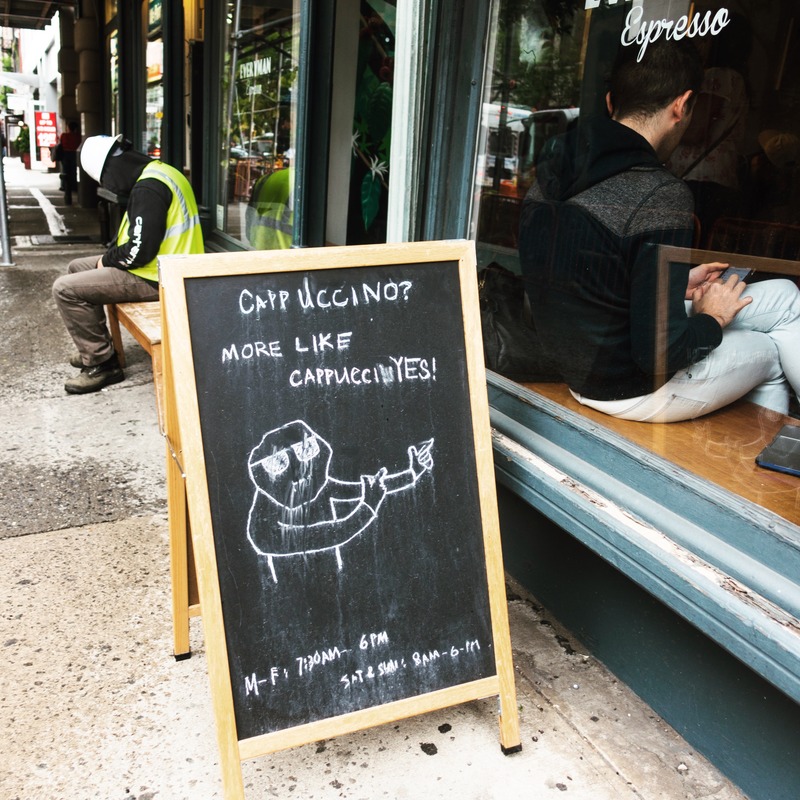 Espresso
EVERYMAN
CAPPUCCINO?
MORE LIKE
CAPPUCCINYES!
M-F: 7:30AM- 6PM
SAT & SUN: 8AM-6-PM